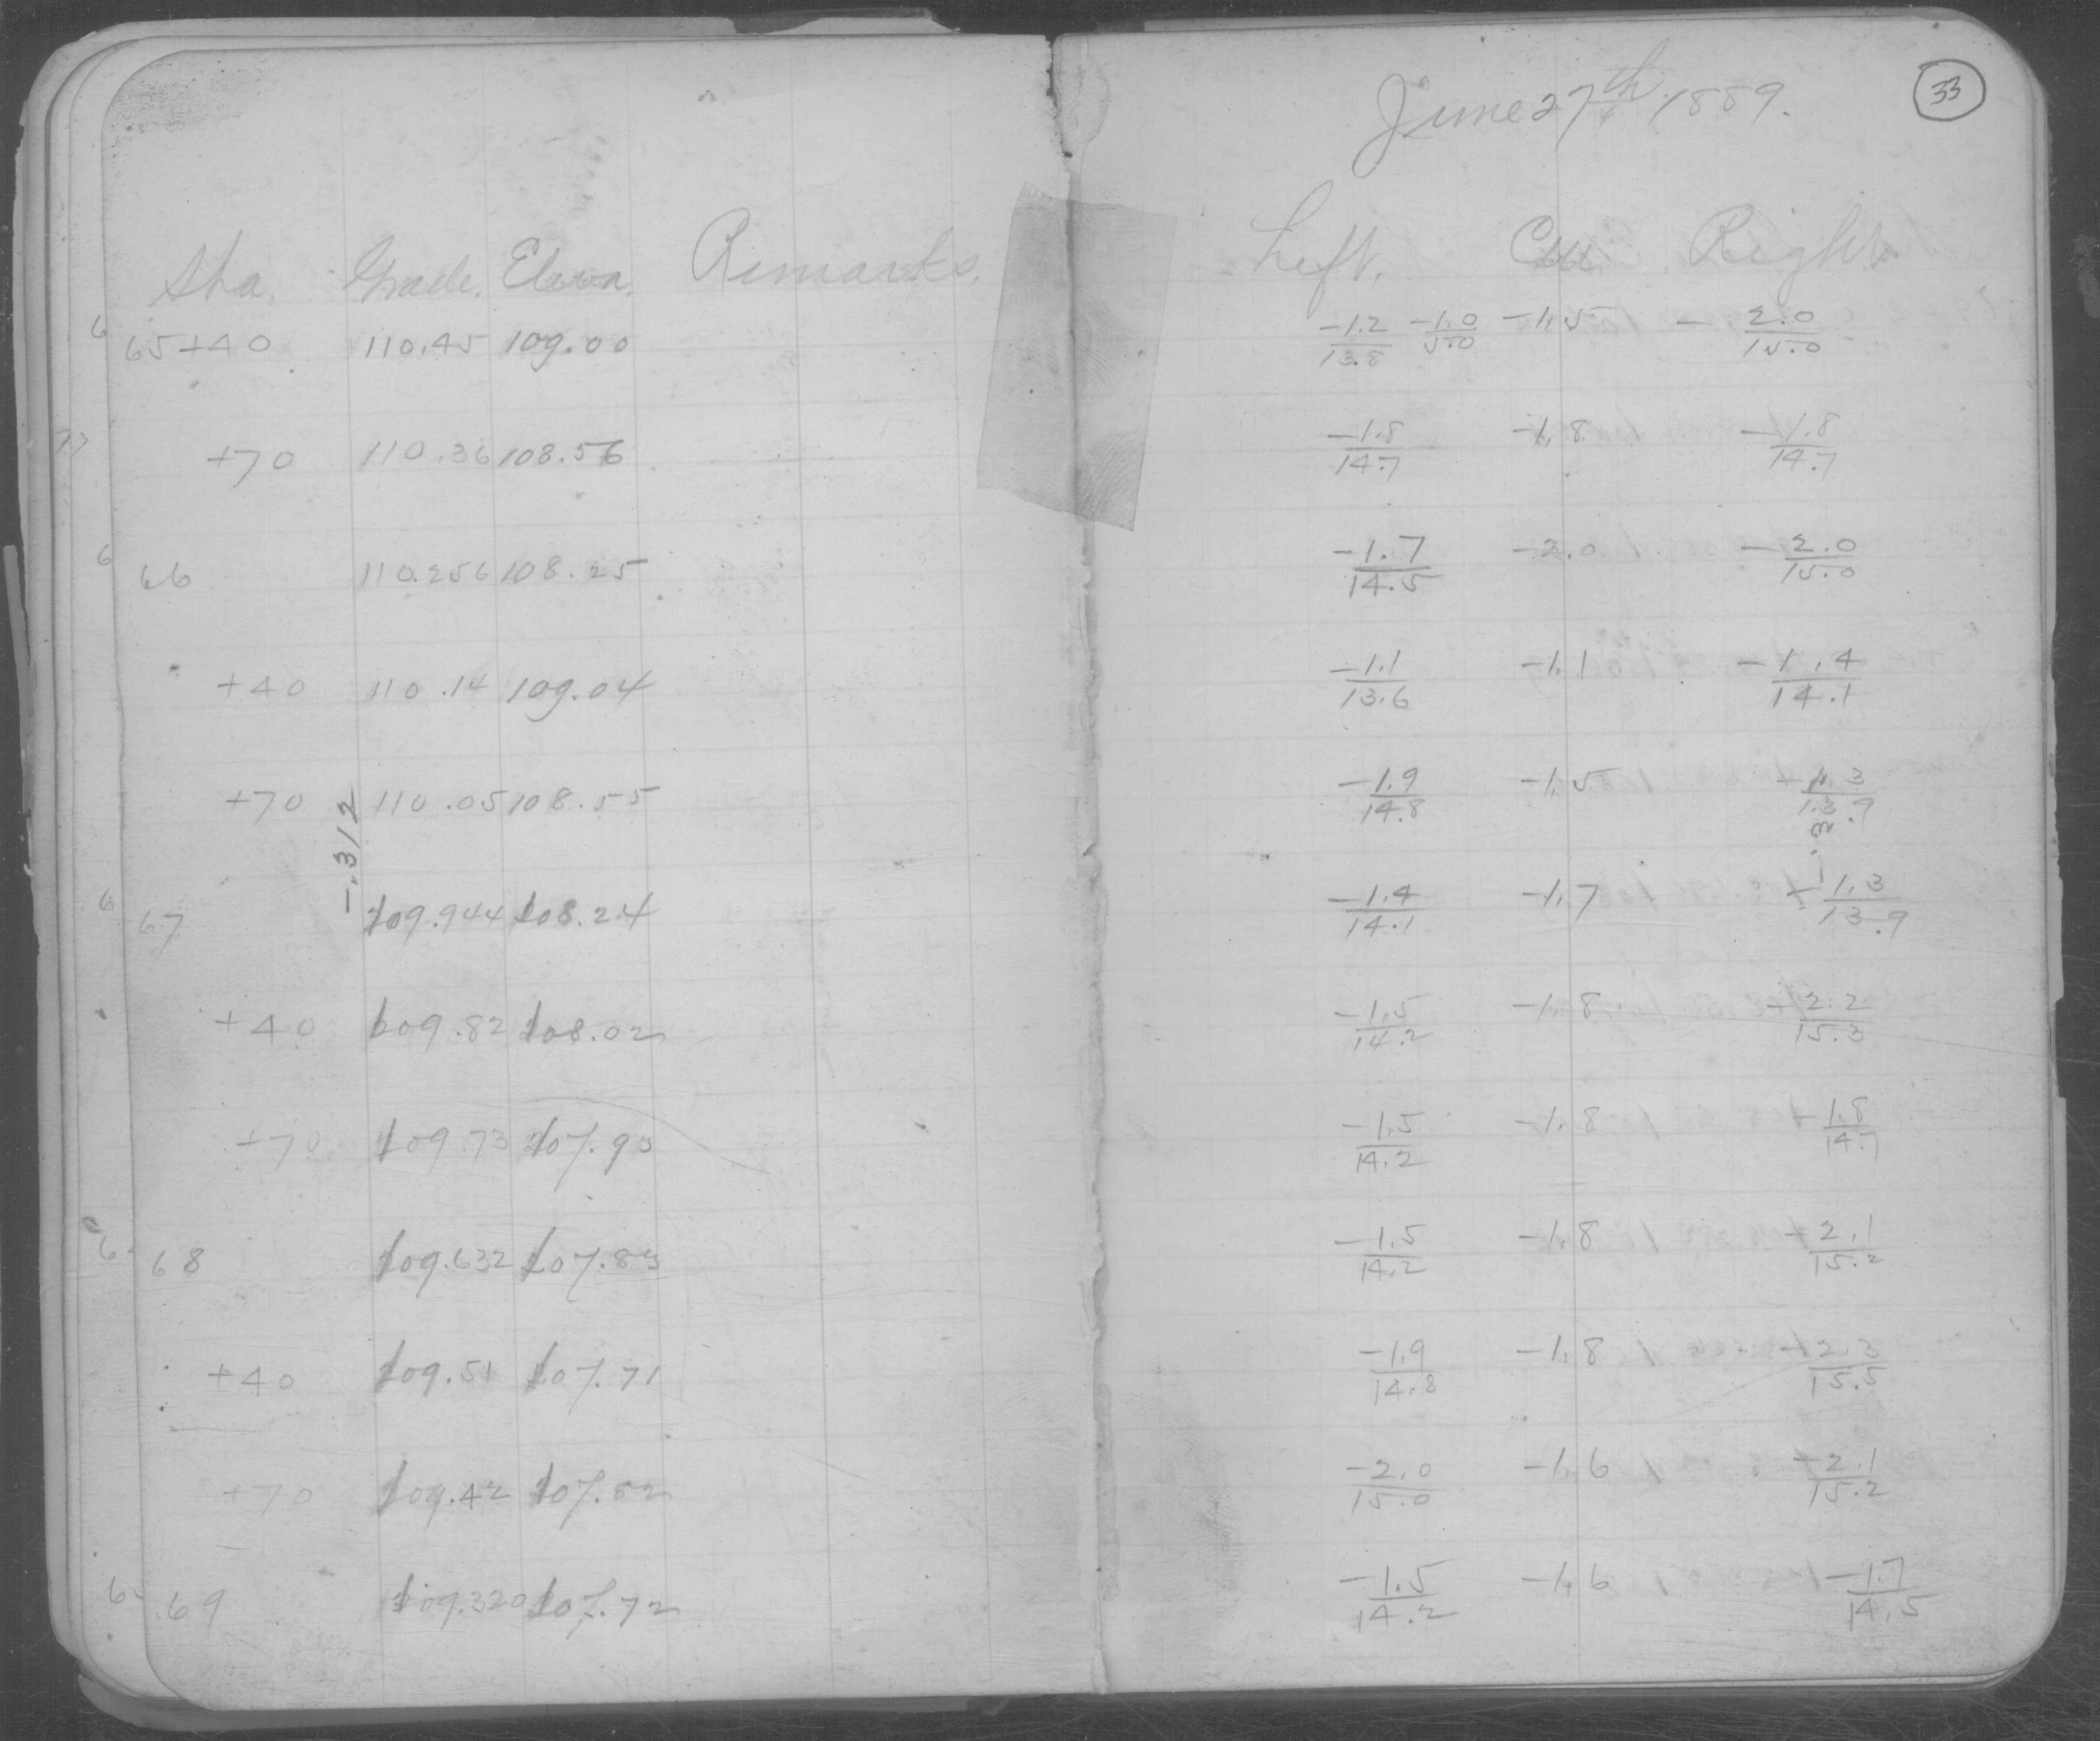 June 27th 1889.
33
Sta. Grade. Eleva. Remarks. Left. Cen. Right.
65+40 110.45 109.00 -1.2/13.8 -1.0/5.0 -1.5 -2.0/15.0
+70 110.36 108.56 -1.8/14.7 -1.8 -1.8/14.7
66 110.256 108.25 -1.7/14.5 -2.0 -2.0/15.0
+40 110.14 109.04 -1.1/13.6 -1.1 -1.4/14.1
+70 110.05 108.55 -1.9/14.8 -1.5 -1.3/13.9
-.312
67 109.944 108.24 -1.4/14.1 -1.7 -1.3/13.9
+40 109.82 108.02 -1.5/14.2 -1.8 -2.2/15.3
+70 109.73 107.93 -1.5/14.2 -1.8 -1.8/14.7
68 109.632 107.83 -1.5/14.2 -1.8 -2.1/15.2
+40 109.51 107.71 -1.9/14.8 -1.8 -2.3/15.5
+70 109.42 107.82 -2.0/15.0 -1.6 -2.1/15.2
69 109.320 107.72 -1.5/14.2 -1.6 -1.7/14.5